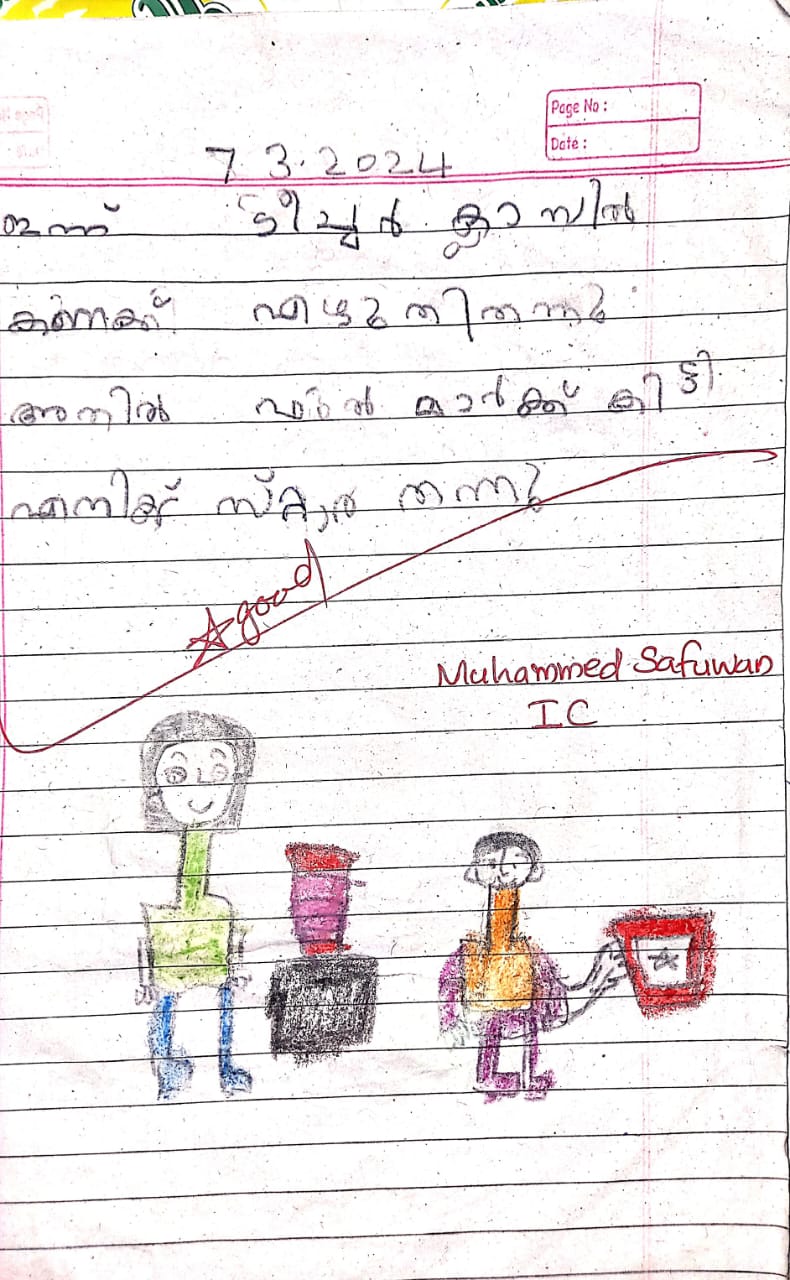 Page No :
Date :
7.3.2024
ഇന്ന് ടീച്ചർ ക്ലാസിൽ
കണക്ക് എഴുതിതന്നു
അതിൽ മാർക്ക് കിട്ടി
എനിക്ക് സ്റ്റാർ തന്നു
good
Muhammed Safuwan
I C